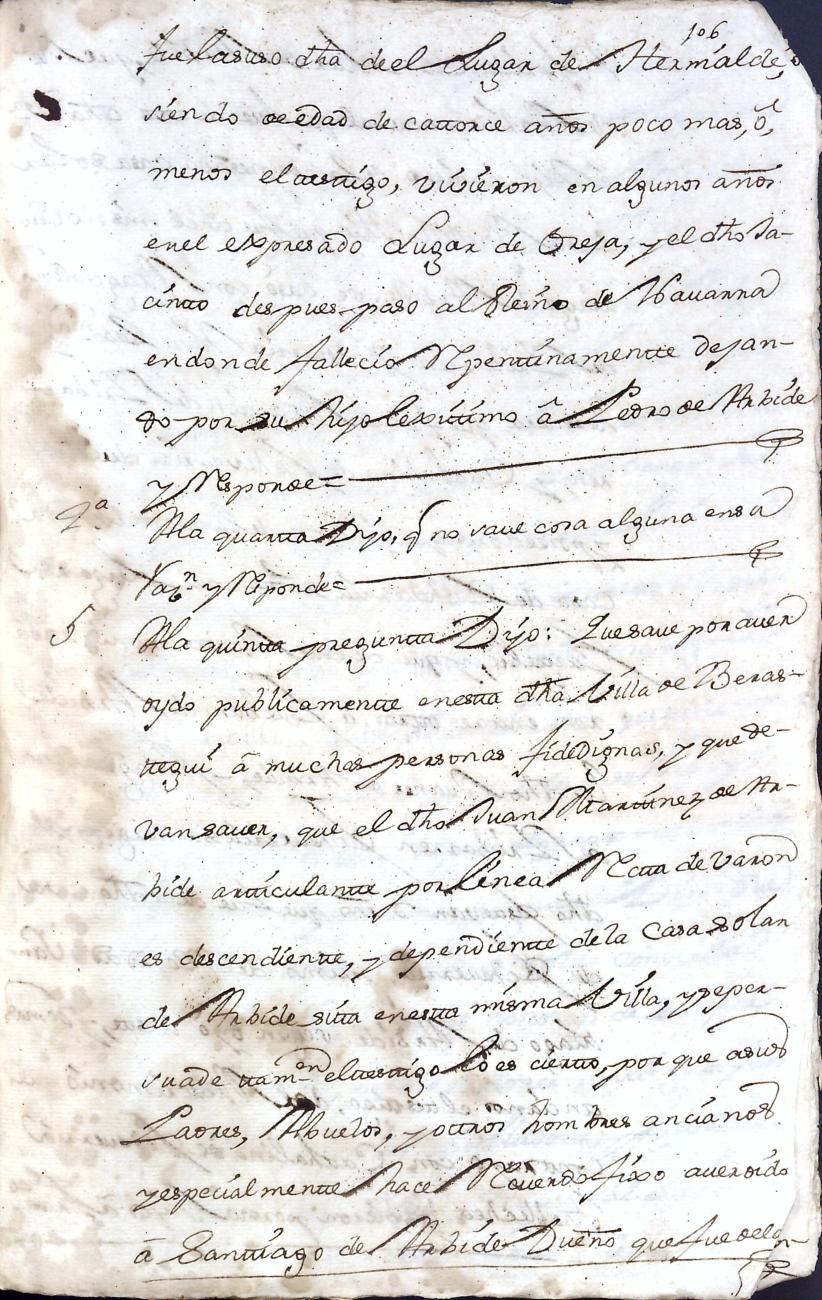 106
fue la suso dha de el Lugar de Hernialde,
siendo de edad de cattorce años poco mas, ó,
menos el testtigo, vivieron en algunos años
en el expresado Lugar de Oreja, y el dho Ja-
cintto despues paso al Reino de Navarra
en donde fallecio Repenttinamentte dejan-
do por su hijo lexitimo â Pedro de Arbide
y Responde =
4ª
Ala quartta Dijo, q̃ no save cosa alguna en su
Razn. y Responde =
5
Ala quintta preguntta Dijo: Que save por aver
oydo publicamentte en estta dha Villa de Beras-
ttegui â muchas personas fidedignas, y que de-
van saver, que el dho Juan Marttinez de Ar-
bide artticulantte por línea Rectta de varon
es descendientte, y dependientte de la Casa solar
de Arbide sitta en estta misma Villa, y se per-
suade ttamn. el testtigo lo es ciertto, por que a sus
Padres, Abuelos, y ottros hombres ancianos
y especialmentte hace Recuerdo fixo aver oido
â Santtiago de Arbide Dueño que fue de la